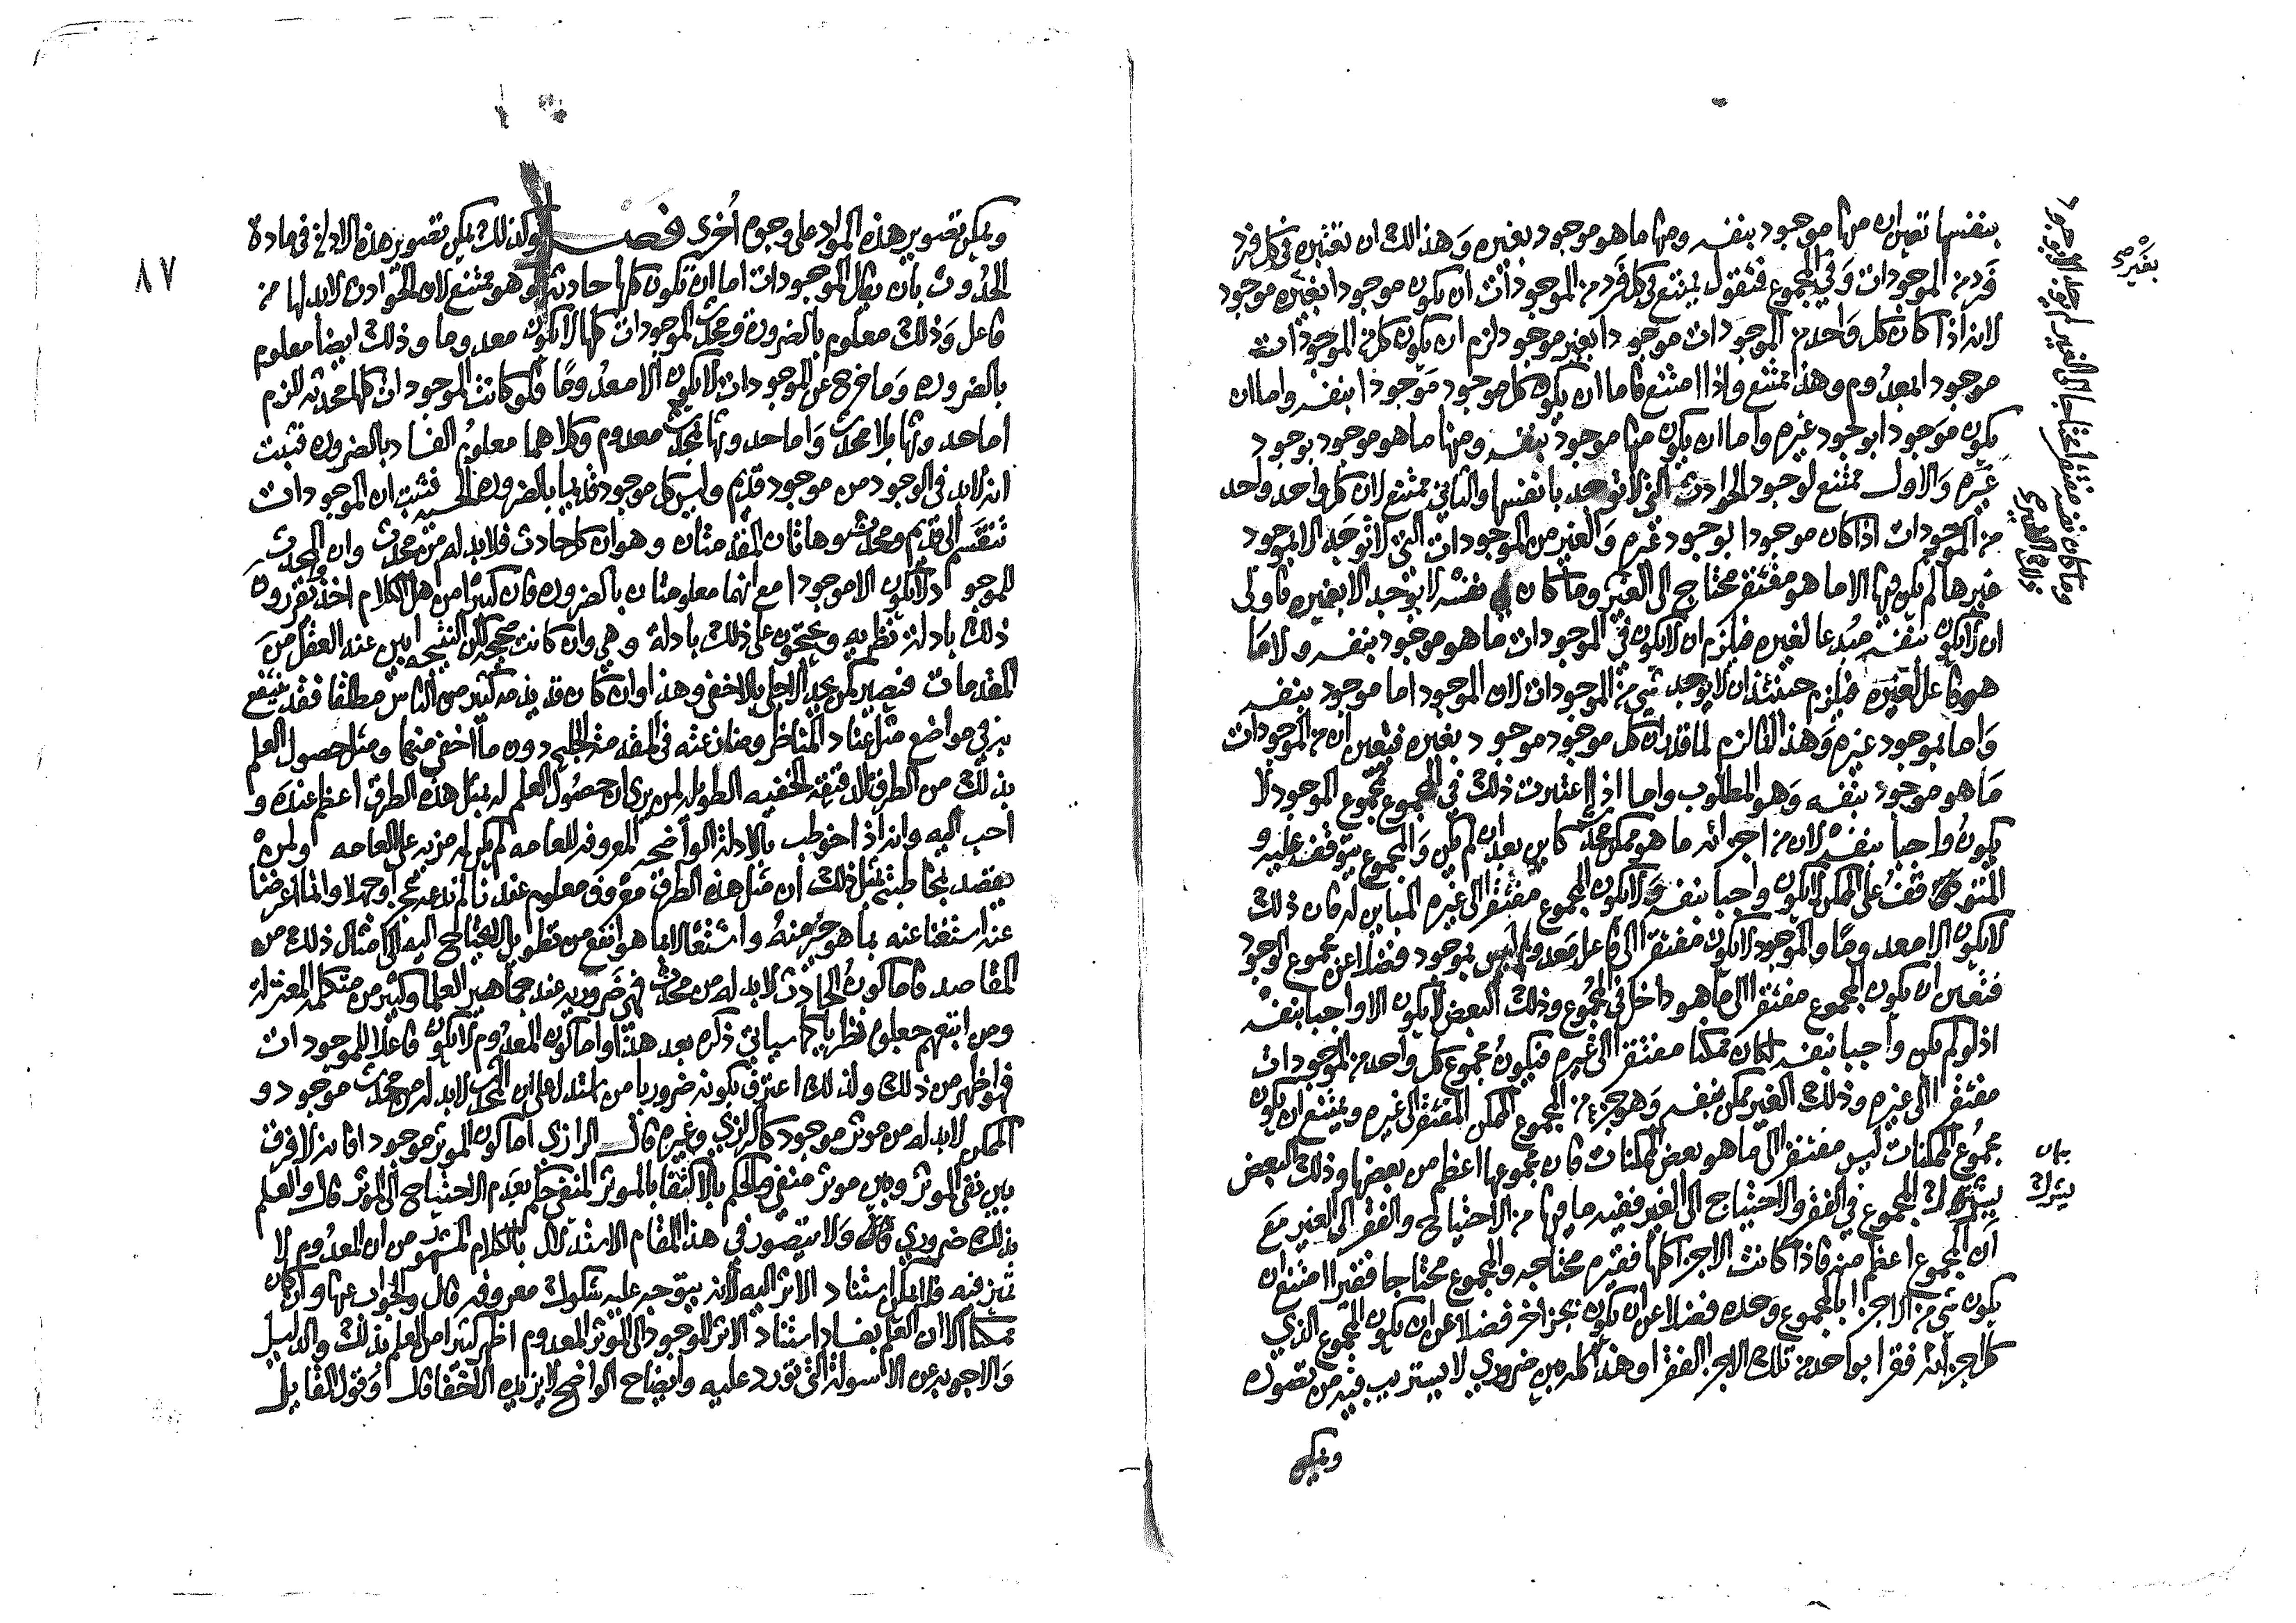 بنفسها تعين ان منها موجود بنفسه ومنها ما هو موجود بغيره وهذا لك ان تعتبره في كل فرد
فرد من الموجودات وفي المجموع فتقول يمتنع في كل فرد من الموجودات ان يكون موجودا بغيره موجود
لانه اذا كان كل واحد من الموجودات موجودا بغير موجود لزم ان يكون كل من الموجودات
موجود المعدوم وهذا ممتنع واذا امتنع فاما ان يكون كل موجود موجودا بنفسه واما ان
يكون موجودا بوجود غيره واما ان يكون منها موجود بنفسه ومنها ما هو موجود بوجود
غيره والاول ممتنع لوجود الحوادث التي لا توجد بانفسها والثاني ممتنع لان كل واحد واحد
من الموجودات اذا كان موجودا بوجود غيره والغير من الموجودات التي لا توجد الا بموجود
غيرها لم يكن فيها الا ما هو مفتقر محتاج الى الغير وما كان نفسه لا توجد الا بغيره فاولى
ان لا يكون بنفسه مبدعا لغيره فيلزم ان لا يكون في الموجودات ما هو موجود بنفسه ولا ما
هو فاعل لغيره فيلزم حينئذ ان لا يوجد شي من الموجودات لان الموجود اما موجود بنفسه
واما بموجود غيره وهذا انما لزم لما قدر ان كل موجود موجود بغيره فتعين ان من الموجودات
ما هو موجود بنفسه وهو المطلوب واما اذا اعتبرت ذلك في المجموع فمجموع الموجود لا
يكون واجبا بنفسه لان من اجزائه ما هو ممكن محدث كاين بعد ان لم يكن والمجموع يتوقف عليه و
المتوقف على الممكن لا يكون واجبا بنفسه ولا يكون المجموع مفتقرا الى غيره المباين له فان ذلك
لا يكون الا معدوما والموجود لا يكون مفتقرا الى فاعل معدوم ليس بموجود فضلا عن مجموع الوجود
فتعين ان يكون المجموع مفتقرا الى ما هو داخل في المجموع وذلك البعض لا يكون الا واجبا بنفسه
اذ لو لم يكن واجبا بنفسه لكان ممكنا مفتقرا الى غيره فيكون مجموع كل واحد من الموجودات
مفتقرا الى غيره وذلك الغير ممكن بنفسه وهو جزء من المجموع الممكن المفتقر الى غيره ويمتنع ان يكون
مجموع الممكنات ليس مفتقرا الى ما هو بعض الممكنات فان مجموعها اعظم من بعضها وذلك البعض
يشترك المجموع في الفقر والاحتياج الى الغير ففيه ما فيها من الاحتياج والفقر الى الغير مع
ان المجموع اعظم منه فاذا كانت الاجزا كلها فقيره محتاجه والمجموع محتاجا فقيرا امتنع ان
يكون شي من الاجزا بالمجموع وحده فضلا عن ان يكون بجز اخر فضلا عن ان يكون المجموع الذي
كل اجزائه فقرا بواحد من تلك الاجزا الفقرا وهذا كله بين ضروري لا يستريب فيه من تصوره
ويمكن
بغيره صح
بيان
يشرك
ويمكن تصوير هذه المواد على وجوه اخرى فصل وكذلك يمكن تصوير هذه الادلة في مادة
الحدوث بان يقال الموجودات اما ان تكون كلها حادثة وهو ممتنع لان الحوادث لا بد لها من
فاعل وذلك معلوم بالضرورة ومحدث الموجودات كلها لا يكون معدوما وذلك ايضا معلوم
بالضروره وما خرج عن الموجودات لا يكون الا معدوما فلو كانت الموجودات كلها محدثه للزم
اما حدوثها بلا محدث واما حدوثها بمحدث معدوم وكلاهما معلوم الفساد بالضروره فثبت
انه لا بد في الوجود من موجود قديم وليس كل موجود قديما بالضروره الحسيه فثبت ان الموجودات
تنقسم الى قديم ومحدث وهاتان المقدمتان وهو ان كل حادث فلا بد له من محدث وان المحدث
للموجود لا يكون الا موجودا مع انهما معلومتان بالضروره فان كثيرا من اهل الكلام اخذوا يقررون
ذلك بادلة نظريه ويحتجون على ذلك بادلة وهي وان كانت صحيحة لكن النتيجه ابين عند العقل من
المقدمات فيصير كمن يحد الاجلى بالاخفى وهذا وان كان قد يذمه كثير من الناس مطلقا فقد ينتفع
به في مواضع مثل عناد المناظر ومنازعته في المقدمة الجليه دون ما اخفى منها ومثل حصول العلم
بذلك من الطرق الدقيقه الخفيه الطويله لمن يرى ان حصول العلم له بمثل هذه الطرق اعظم عنده و
احب اليه وانه اذا خوطب بالادلة الواضحه المعروفه للعامه لم يكن له مزيه على العامه اولمن
يقصد بمخاطبته بمثل ذلك ان مثل هذه الطرق معروف معلوم عندنا لم ندعه عجزا وجهلا وانما اعرضنا
عنه استغنا عنه بما هو خير منه واشتغالا بما هو انفع من تطويل لا يحتاج اليه الى امثال ذلك من
المقاصد فاما كون الحادث لا بد له من محدث فهي ضروريه عند جماهير العلما وكثير من متكلمه المعتزله
ومن اتبعهم جعلوه نظريا كما سياتي ذكره بعد هذا واما كون المعدوم لا يكون فاعلا للموجودات
فهو اظهر من ذلك ولذلك اعترف بكونه ضروريا من استدل على ان المحدث لا بد له من محدث موجود و
الممكن لا بد له من موثر موجود كالرازي وغيره قال الرازي اما كون الموثر موجودا فانه لا فرق
بين نفي الموثر وبين موثر منفي والحكم بالاكتفا بالموثر المنفي حكم بعدم الاحتياج الى الموثر قال والعلم
بذلك ضروري قال ولا يتصور في هذا المقام الاستدلال بالكلام المشهور من ان المعدوم لا
تميز فيه فلا يمكن استناد الاثر اليه لانه يتوجه عليه شكوك معروفه قال والجواب عنها وان كان
ممكنا الا ان العلم بفساد استناد الاثر الموجود الى الموثر المعدوم اظهر كثيرا من العلم بذلك والدليل
والاجوبه عن الاسولة التي تورد عليه وايضاح الواضح لا يزيده الا خفا قال وقول القايل
٨٧